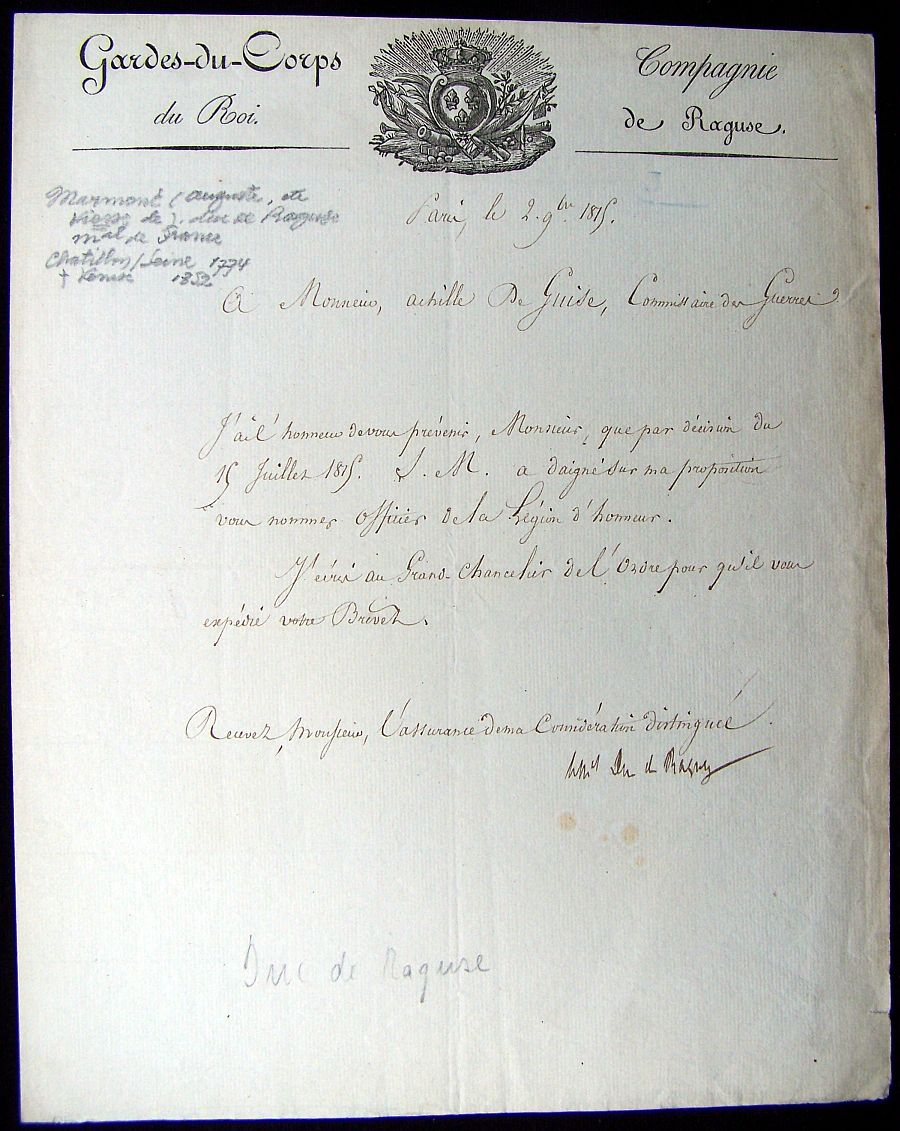 Gardes-du-Corps
du Roi.
Compagnie
de Raguse.
Marmont (auguste, etc
Viesse de), duc de Raguse
mal de France
Chatillon/Seine 1774
† Venise 1852
Paris, le 2. 9bre 1815.
A Monsieur, achille De Guise, Commissaire des Guerres
J'ai l'honneur de vous prévenir, Monsieur, que par décision du
15 Juillet 1815. S. M. a daigné sur ma proposition
vous nommer officier de la Légion d'honneur.
J'écris au Grand-Chancelier de l'Ordre pour qu'il vous
expédié votre Brevet.
Recevez, Monsieur, l'assurance de ma Considération distinguée.
Duc de Raguse
Duc de Raguse